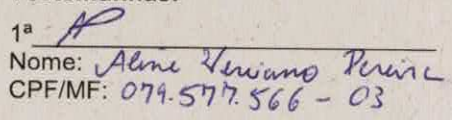 1ª
Nome: Aline Veriano Pereira
CPF/MF: 079.577.566 - 03